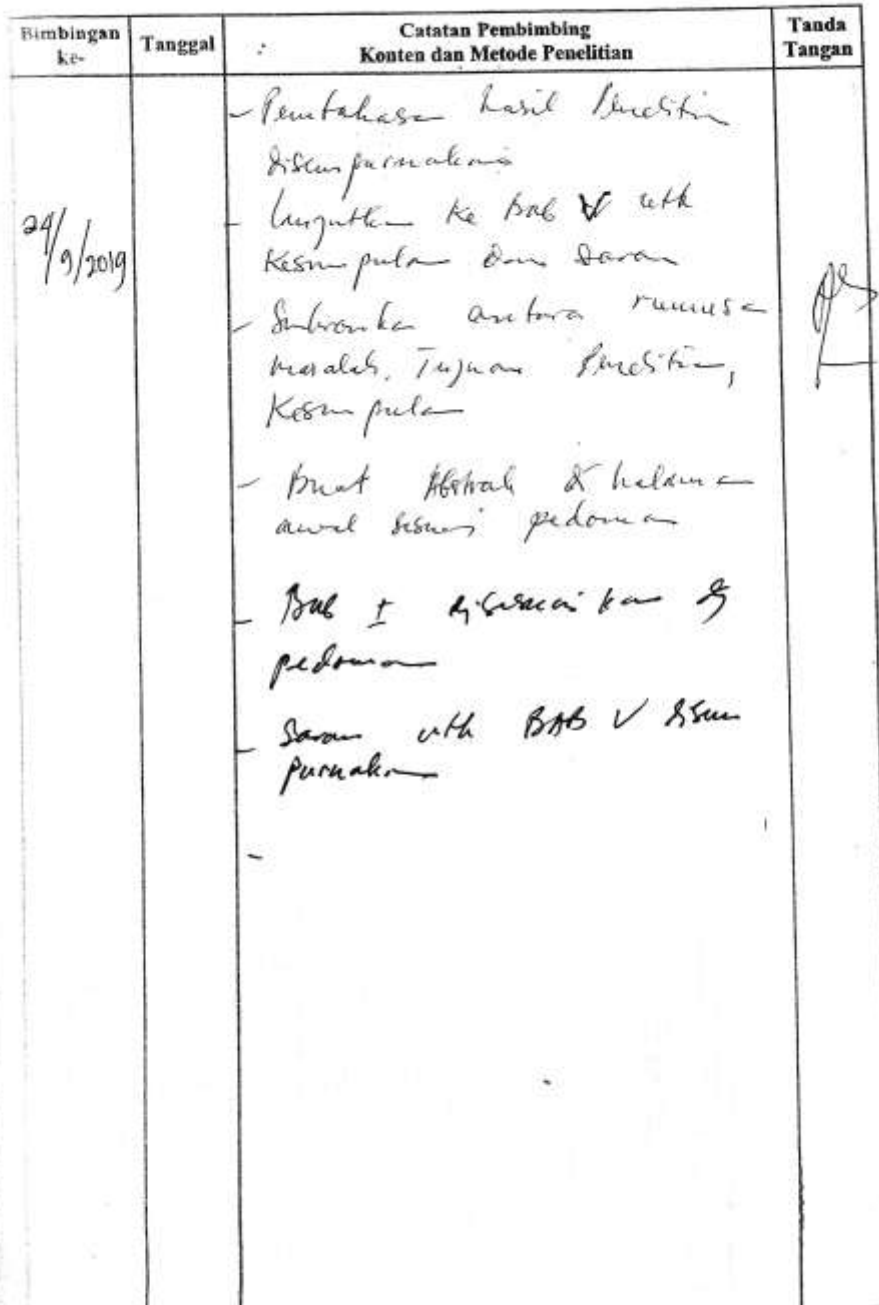 Bimbingan ke-
Tanggal
Catatan Pembimbing
Konten dan Metode Penelitian
Tanda Tangan
- Pembahasan hasil Penelitian
disempurnakan
24/9/2019
- Lanjutkan ke Bab V utk
Kesimpulan dan Saran
- Sinkronkan antara rumusan
masalah, Tujuan Penelitian,
Kesimpulan
- Buat Abstrak & halaman
awal sesuai pedoman
- Bab I disesuaikan dg
pedoman
- Saran utk BAB V disem
purnakan
-